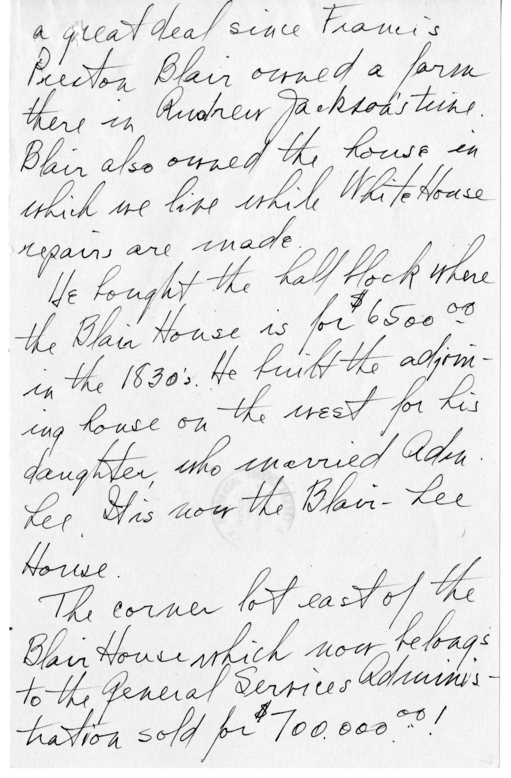 a great deal since Francis
Preston Blair owned a farm
there in Andrew Jackson's time.
Blair also owned the house in
which we live while White House
repairs are made.
He bought the half block where
the Blair House is for $6500 00
in the 1830's. He built the adjoin-
ing house on the west for his
daughter, who married Adm.
Lee. It is now the Blair-Lee
House.
The corner lot east of the
Blair House which now belongs
to the General Services Adminis-
tration sold for $700.000.00!